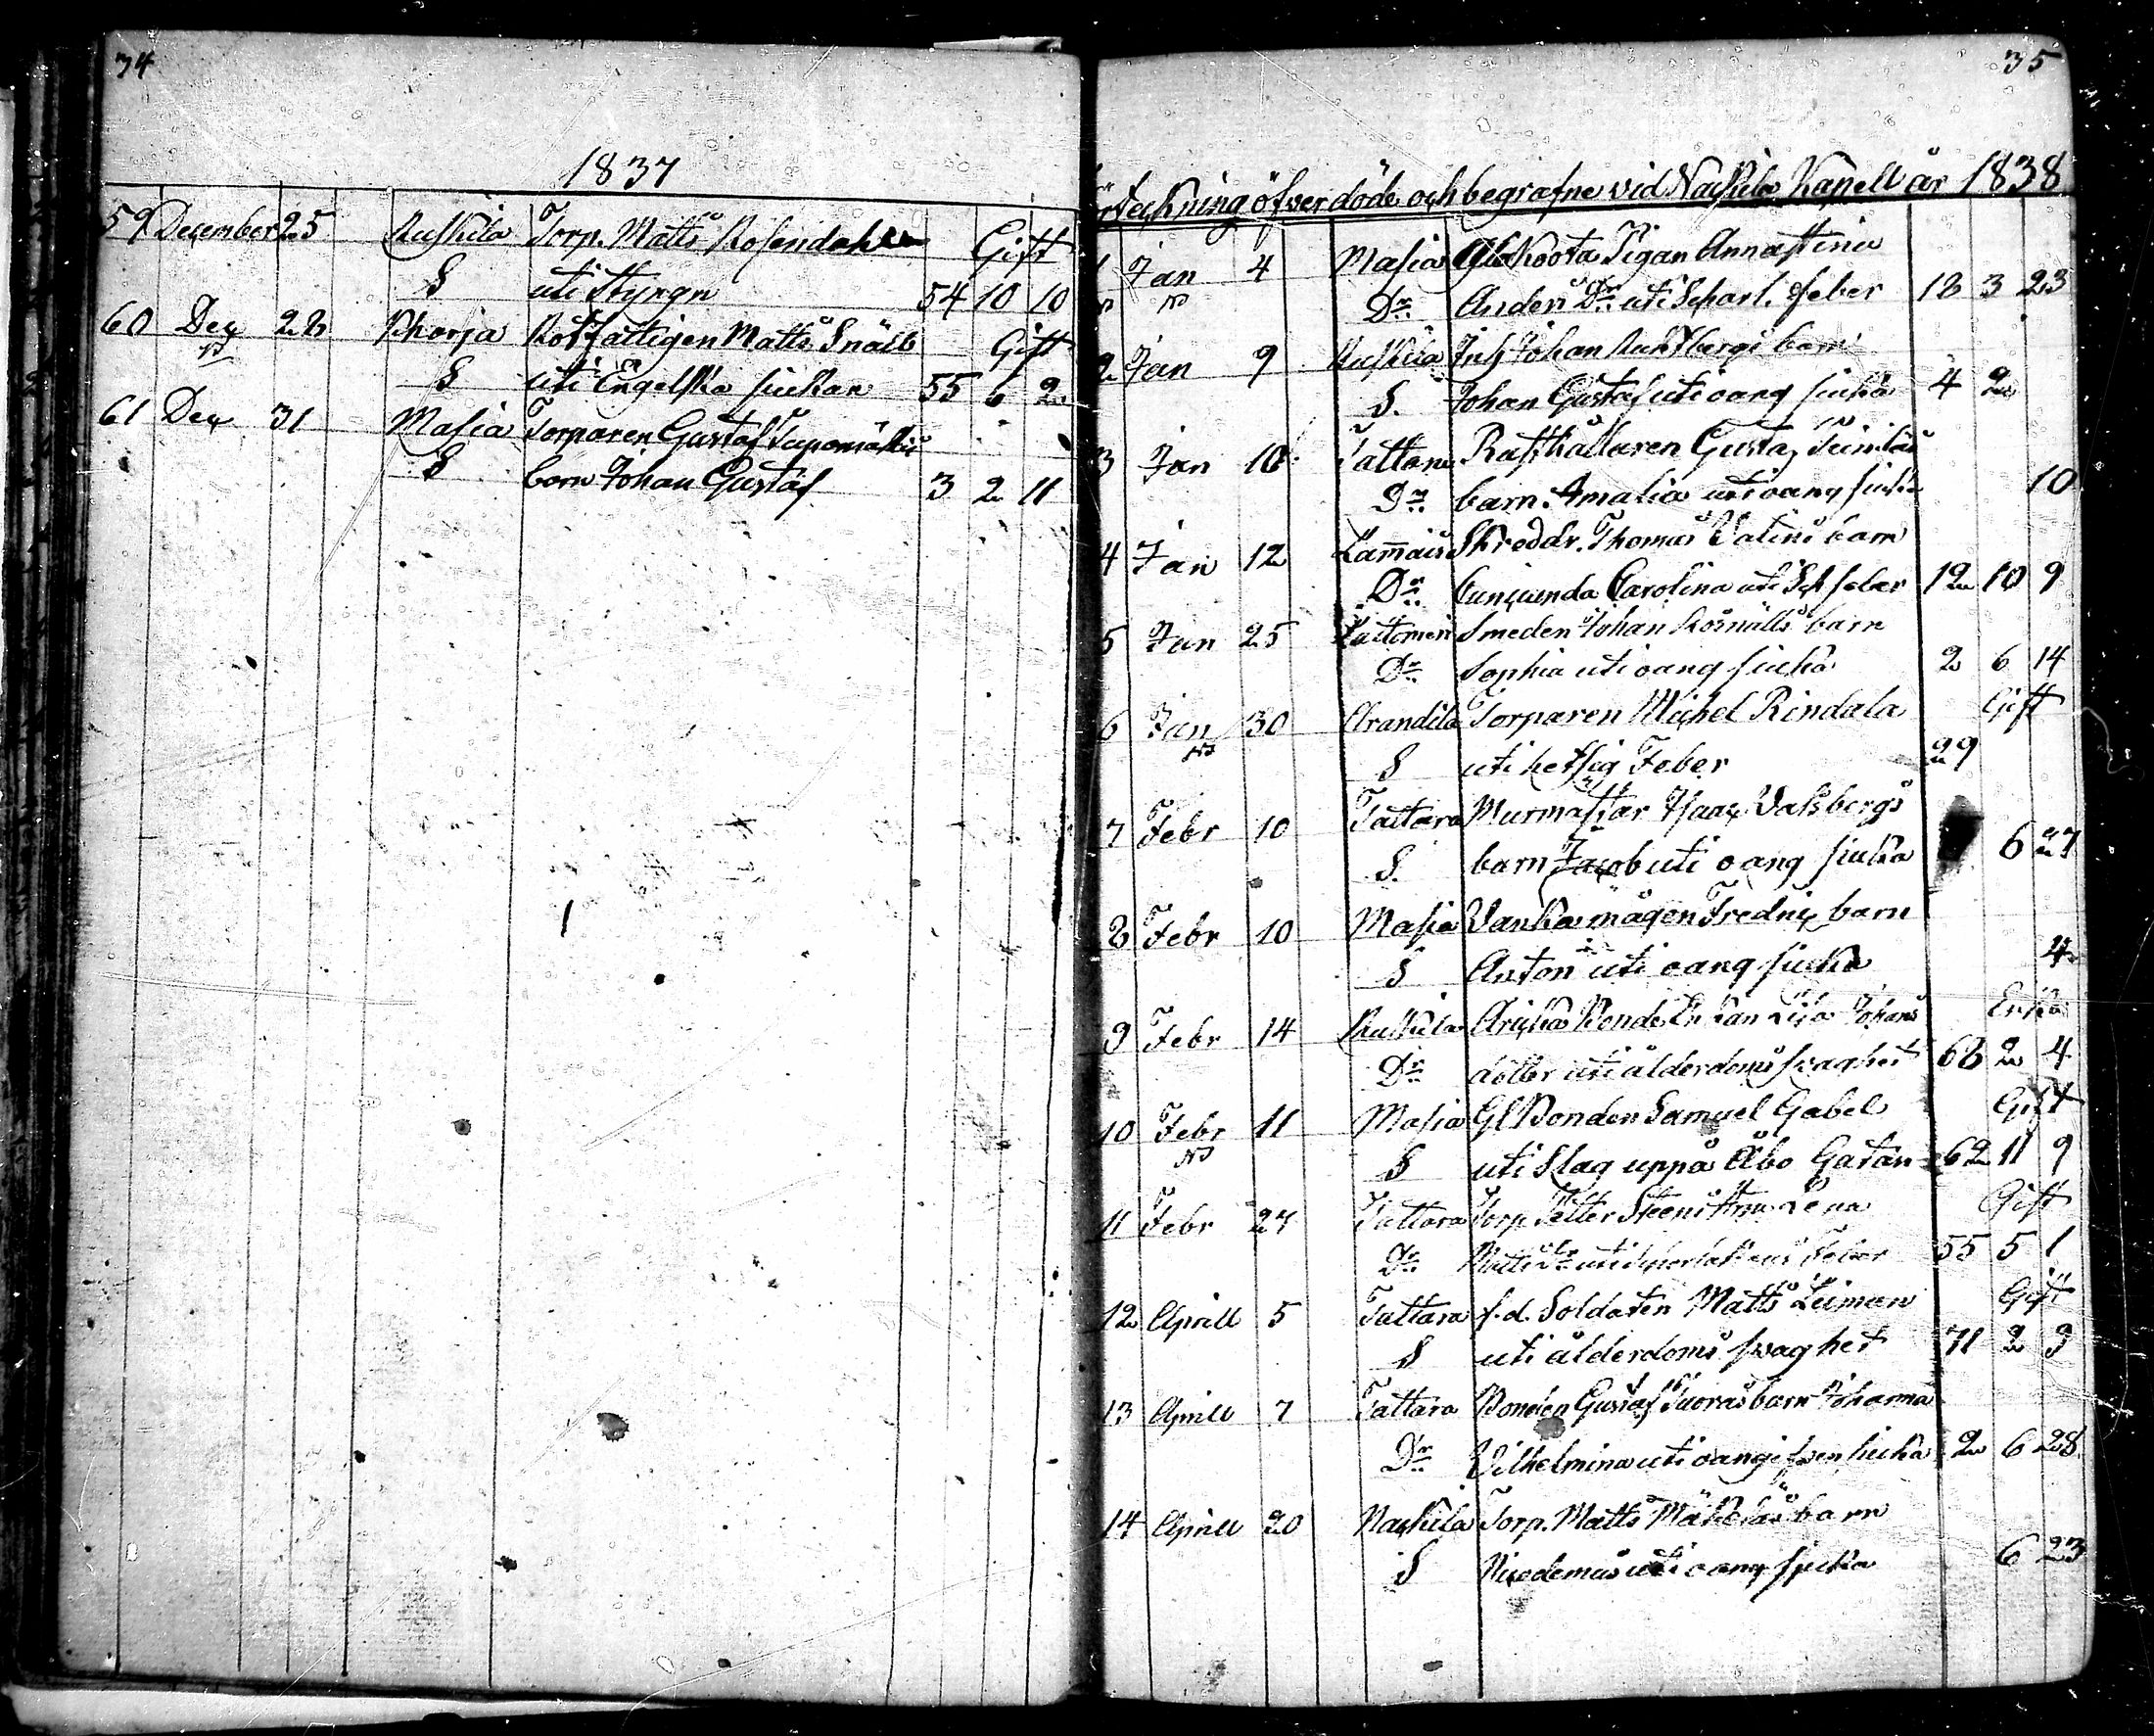 34
1837
59 December 25 Ruskila Torp. Matts Rosendahl Gift
S uti Styngn 54 10 10
60 Dec 28 Khorja Rotfattigen Matts Snäll Gift
S uti Engelska siukan 55 6 2
61 Dec 31 Masia Torparen Gustaf
S barn Johan Gustaf 3 2 11
35
teckning öfver döde och begrafne vid Nackila Kapell år 1838
1 Jan 4 Masia Pigan Anna Stina
Dr Anders Dr uti Scharl. feber 18 3 23
2 Jan 9 Ruskila Inh Johan barn
S. Johan Gustaf uti oang siuka 4 2
3 Jan 10 Tattara Gustaf
Dr barn Amalia uti oang siuka 10
4 Jan 12 Lamais Skreddr. Thomas Valins barn
Dr Cunicunda Carolina uti Sch feber 12 10 9
5 Jan 25 Smeden Johan barn
Dr Sophia uti oang siuka 2 6 14
6 Jan 30 Arandila Torparen Michel Rindala Gift
S uti hetsig Feber 29
7 Febr 10 Tattara Murmästar Isaac Valsbergs
S. barn Jacob uti oang siuka 6 27
8 Febr 10 Masia Vanka mågen Fredric barn
S Anton uti oang siuka 4
9 Febr 14 Ruskila Bonde Enkan Lisa Johans Enka
Dr dotter uti ålderdoms svaghet 68 2 4
10 Febr 11 Masia Gl Bonden Samuel Gabel Gift
S uti Slag uppå Åbo Gatan 62 11 9
11 Febr 27 Tattara Torp. Petter Steens Lena Gift
Dr Matts dr uti Feber 55 5 1
12 Aprill 5 Tattara f.d. Soldaten Matts Leiman Gift
S uti ålderdoms svaghet 71 2 9
13 Aprill 7 Tattara Bonden Gustaf Tuoras barn Johanna
Dr Vilhelmina uti oangifven siuka 2 6 28
14 Aprill 20 Nackila Torp. Matts Mäkeläs barn
S Nicodemus uti oang siuka 6 23